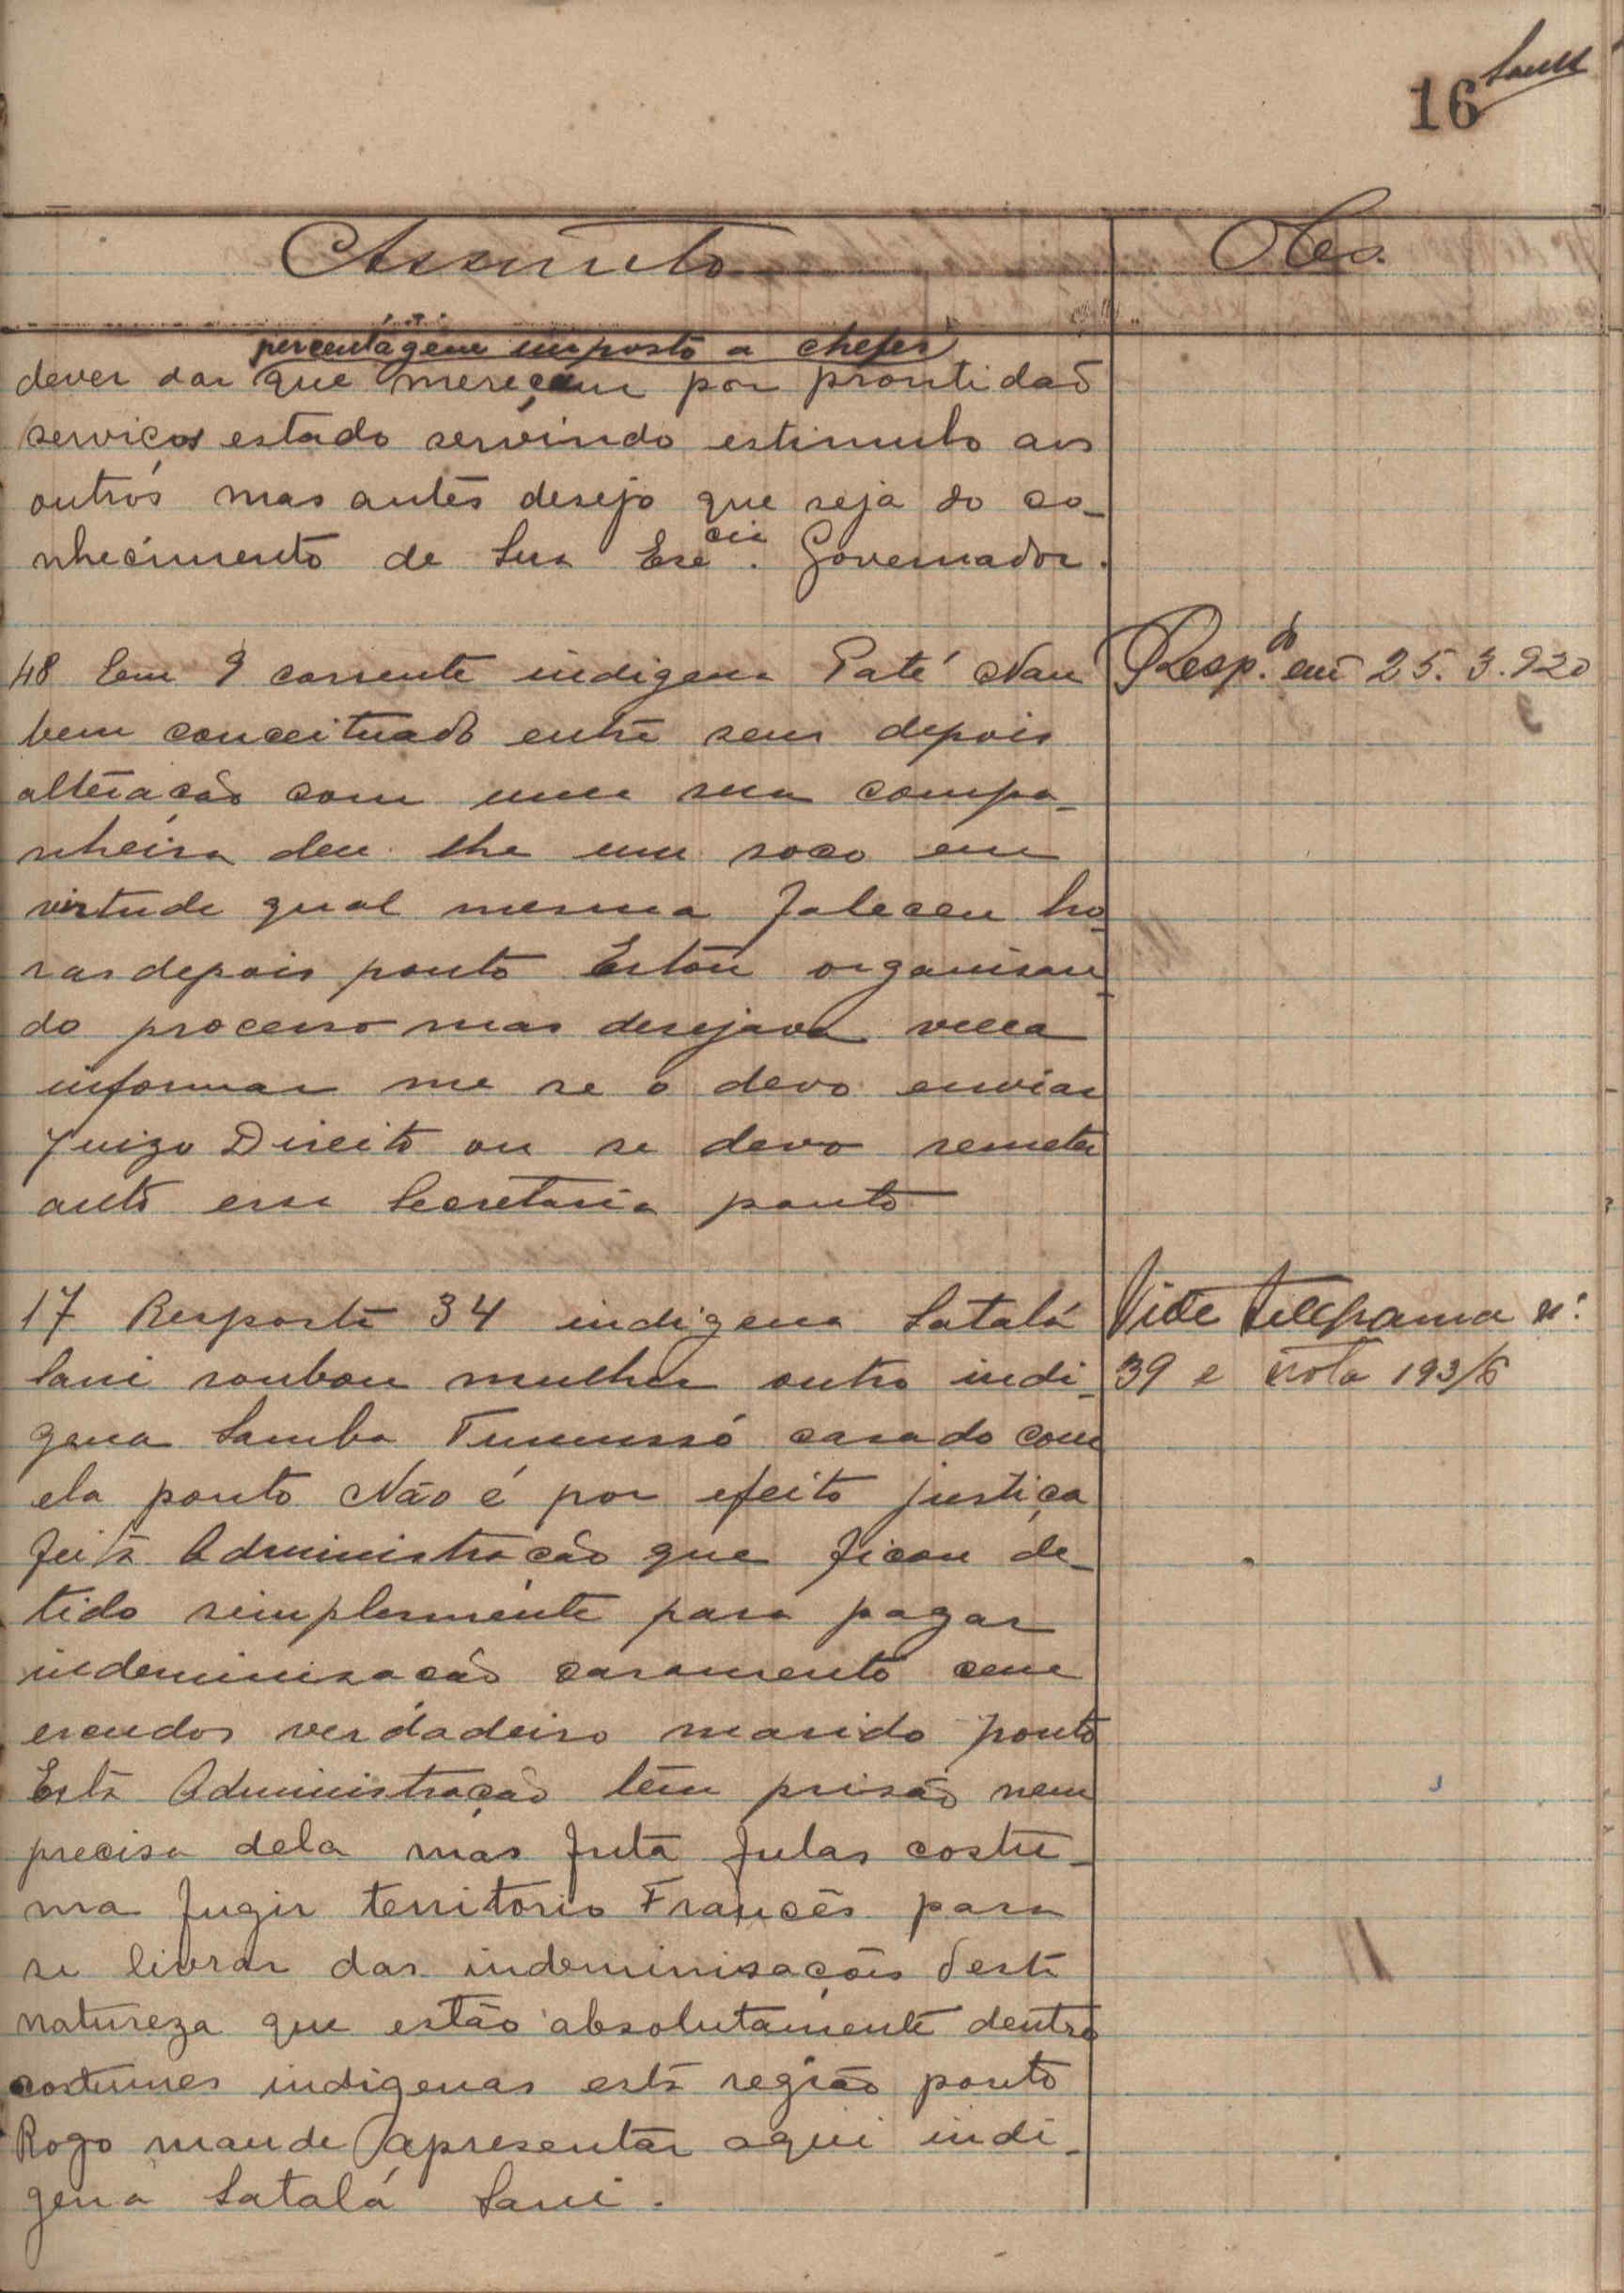 16
Assunto
Obs.
percentágem imposto a chefes
dever dar que mereçam por prontidaõ
serviços estado servindo estimulo aos
outros mas antes desejo que seja do co-
nhecimento de Sua Exe cia. Governador.
48 Em 9 corrente indigena Paté Nan
bem conceituado entre seus depois
alteração com uma sua compa-
nheira deu lhe um soco em
virtude qual mesma faleceu ho-
ras depois ponto Estou organisan-
do processo mas desejava vexa
informar me se o devo enviar
Juizo Direito ou se devo remeter
auto essa Secretaria ponto
Resp. do em 25.3.920
17 Resposta 34 indigena Satalá
Sani roubou mulher outro indi-
gena Samba Tumussó casado com
ela ponto Não é por efeito justiça
feita Administração que ficou de-
tido simplesmente para pagar
indeminisação casamento cem
escudos verdadeiro marido ponto
Esta Administração tem prisão nem
precisa dela mas futa fulas costu-
ma fugir territorio Francês para
se livrar das indeminisações desta
natureza que estão absolutamente dentro
costumes indigenas esta região ponto
Rogo mande apresentar aqui indi-
gena Satalá Sani.
Vide telegrama nº
39 e nota 193/6